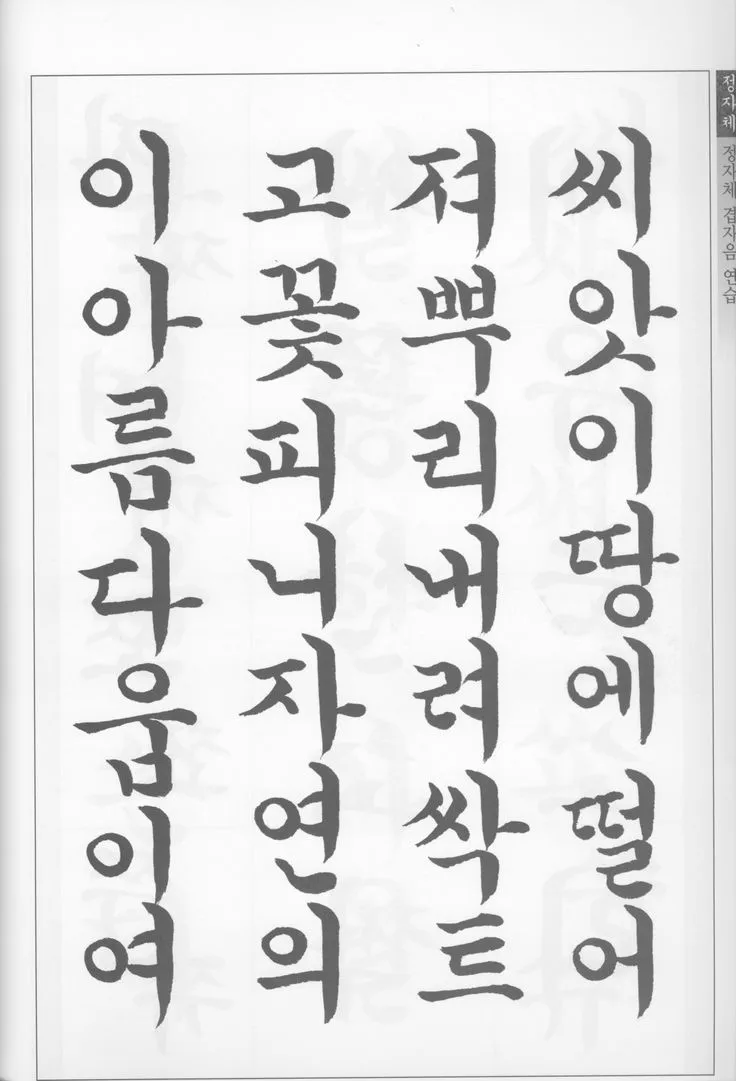 씨앗이땅에떨어
져뿌리내려싹트
고꽃피니자연의
이아름다움이여
정자체
정자체 겹자음 연습